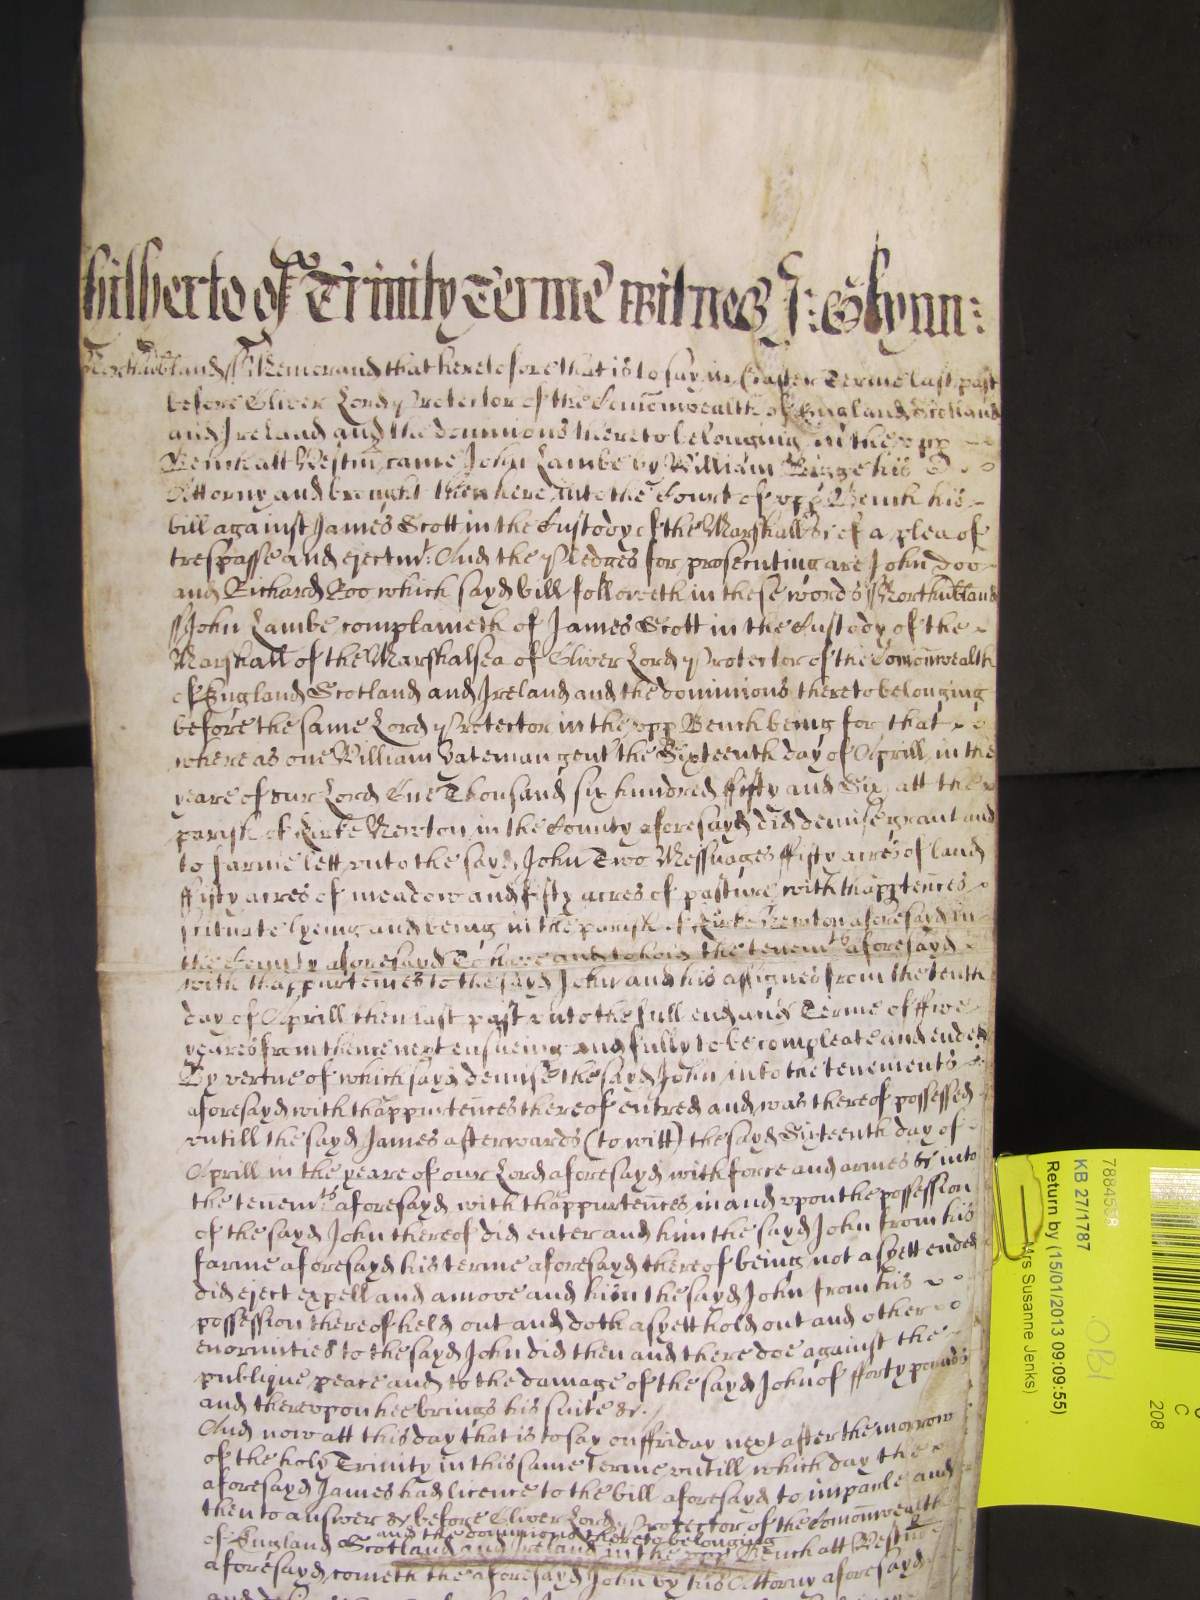 hitherto of Trinity Terme witnes J: Glynn:
Northubland ss Memorand that heretofore that is to say in Easter Terme last past
before Oliver Lord Protector of the Comonwealth of England Scotland
and Ireland and the dominions thereto belonging in the upp
Bench att Westm came John Lambe by William his
Attorny and brought then here into the Court of upp Bench his
bill against James Scott in the Custody of the Marshall &c of a plea of
trespasse and ejectmt: And the Pledges for prosecuting are John Doo
and Richard Roo which sayd bill followeth in these words ss Northubland
ss John Lambe complaineth of James Scott in the Custody of the
Marshall of the Marshalsea of Oliver Lord Protector of the Comonwealth
of England Scotland and Ireland and the dominions thereto belonging
before the same Lord Protector in the upp Bench being for that
whereas one William Bateman gent the Sixteenth day of Aprill in the
yeare of our Lord One Thousand six hundred fifty and Six att the
parish of Kirke Newton in the County aforesayd did demise grant and
to farme lett unto the sayd John Two Messuages ffifty acres of land
ffifty acres of meadow and fifty acres of pasture with thapptences
scituate lyeing and being in the parish of Kirke Newton aforesayd in
the County aforesayd To have and to hold the tenemts aforesayd
with thappurtences to the sayd John and his assignes from the tenth
day of Aprill then last past unto the full end and Terme of ffive
yeares from thence next ensueing and fully to be compleate and ended
By vertue of which sayd demise the sayd John into the tenements
aforesayd with thappurtences thereof entred and was thereof possessed
untill the sayd James afterwards (to witt) the sayd Sixteenth day of
Aprill in the yeare of our Lord aforesayd with force and armes &c into
the tenemts aforesayd with thappurtences in and upon the possession
of the sayd John thereof did enter and him the sayd John from his
farme aforesayd his terme aforesayd thereof being not as yett ended
did eject expell and amove and him the sayd John from his
possession thereof held out and doth as yett hold out and other
enormities to the sayd John did then and there doe against the
publique peace and to the damage of the sayd John of fforty pounds
and thereupon hee brings his suite &c.
And now att this day that is to say on ffriday next after the morrow
of the holy Trinity in this same Terme untill which day the
aforesayd James had licence to the bill aforesayd to imparle and
then to answer &c before Oliver Lord Protector of the Comonwealth
and the dominions thereto belonging
of England Scotland and Ireland in the upp Bench att Westm
aforesayd cometh the aforesayd John by his Attorny aforesayd
7884538
KB 27/1787
Return by (15/01/2013 09:09:55)
Mrs Susanne Jenks)
OBI
C
208